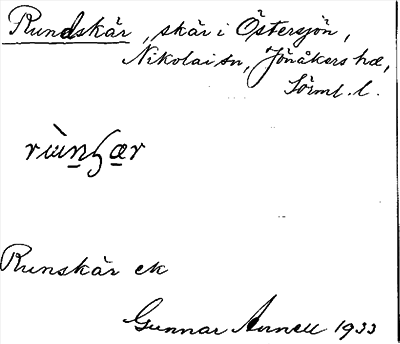 Rundskär, skär i Östersjön,
Nikolai sn, Jönåkers hd,
Sörml. l.
Runskär ek
Gunnar Annell 1933